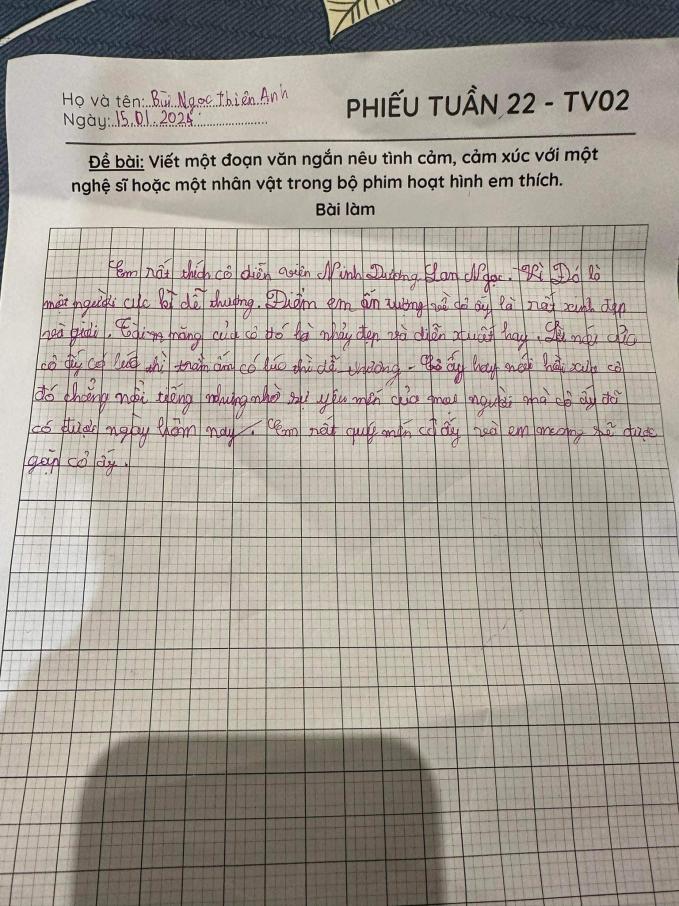 Họ và tên: Bùi Ngọc Thiên Anh
PHIẾU TUẦN 22 - TV02
Ngày: 15.01.2024
Đề bài: Viết một đoạn văn ngắn nêu tình cảm, cảm xúc với một
nghệ sĩ hoặc một nhân vật trong bộ phim hoạt hình em thích.
Bài làm
Em rất thích cô diễn viên Ninh Dương Lan Ngọc. Vì Đó là
một người cực kì dễ thương. Điểm em ấn tượng về cô ấy là rất xinh đẹp
và giỏi. Tài năng của cô đó là nhảy đẹp và diễn xuất hay. nói của
cô ấy có lúc thì trầm ấm có lúc thì dễ thương. Cô ấy hay nói hồi xưa cô
đó chẳng nổi tiếng nhưng nhờ sự yêu mến của mọi người mà cô ấy đã
có được ngày hôm nay. Em rất quý mến cô ấy và em mong sẽ được
gặp cô ấy.